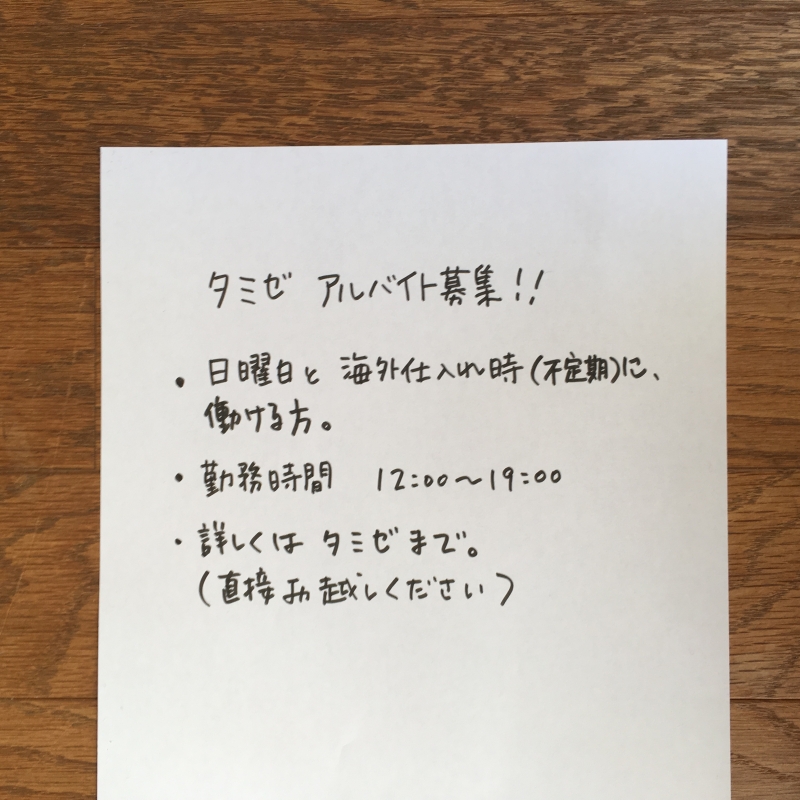 タミゼ アルバイト募集!!
・日曜日と 海外仕入れ時(不定期)に、
働ける方。
・勤務時間 12:00〜19:00
・詳しくは タミゼまで。
(直接お越しください)